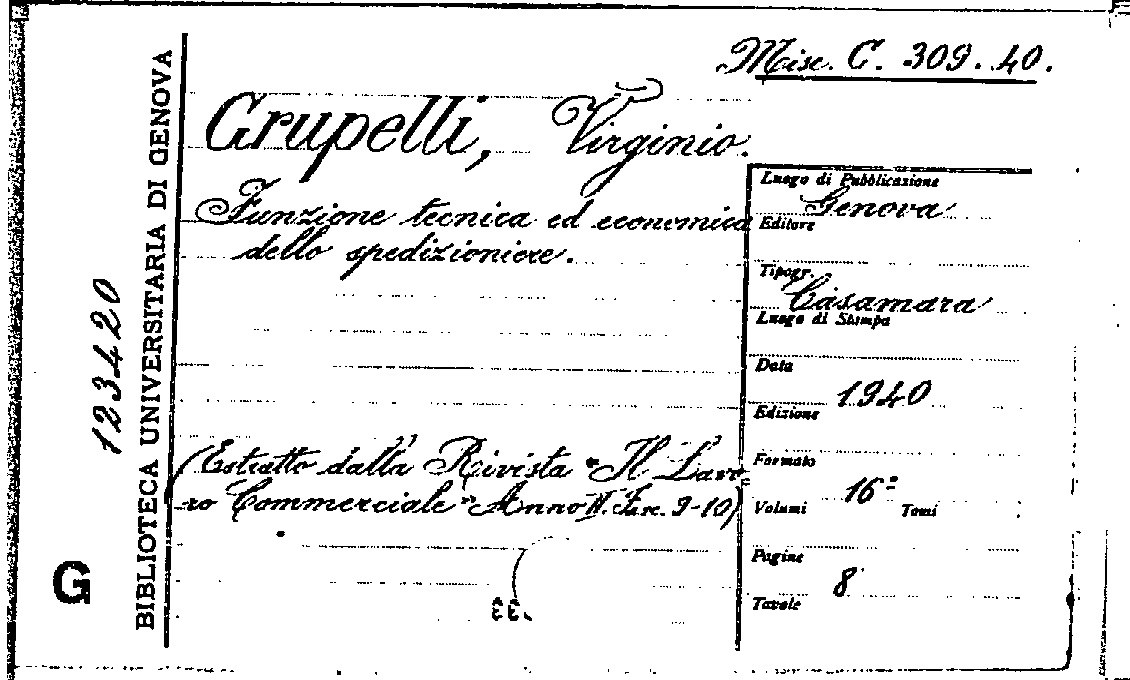 Misc. C. 309. 40.
Grupelli, Virginio.
Funzione tecnica ed economica
dello spedizioniere.
(Estratto dalla Rivista "Il Lavo-
ro Commerciale" Anno II. Fasc. 9-10)
Luogo di Pubblicazione
Genova
Editore
Tipogr.
Casamara
Luogo di Stampa
Data
1940
Edizione
Formato
16º
Volumi Tomi
Pagine
8
Tavole
BIBLIOTECA UNIVERSITARIA DI GENOVA
123420
G